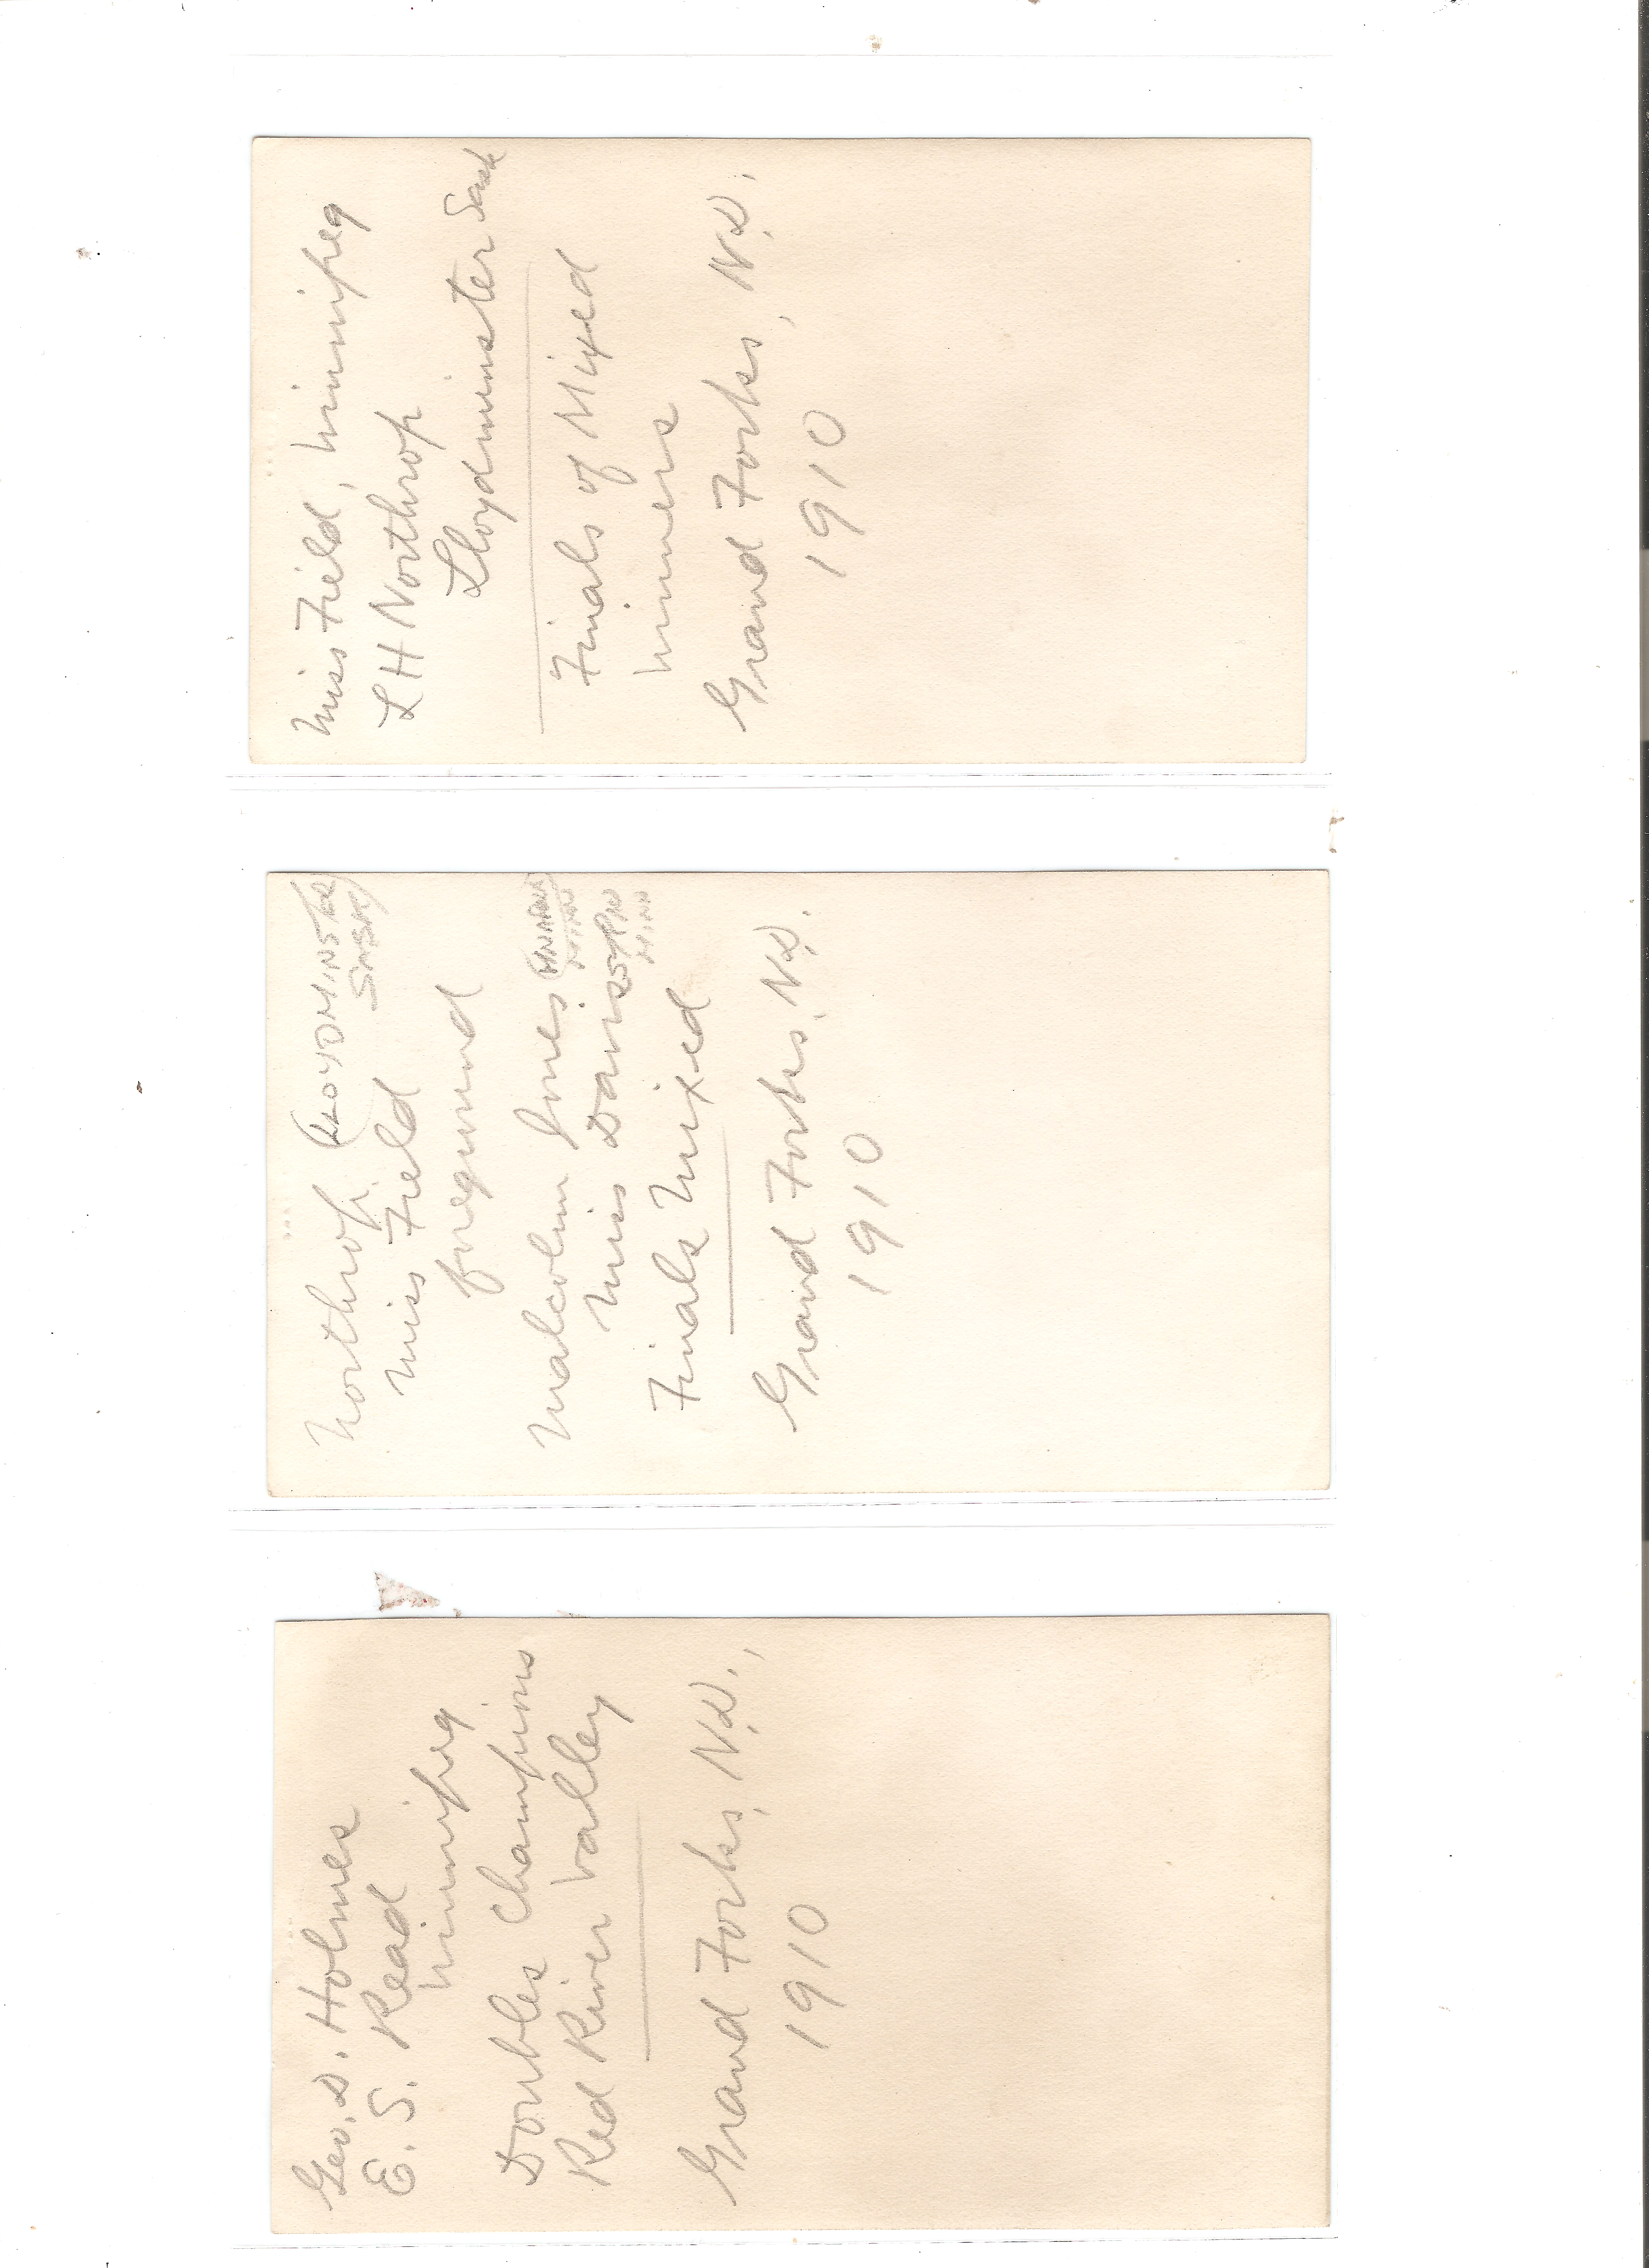 Miss Field, Winnipeg
L H Northrop
Lloydminster Sask
Finals of Mixed
Winners
Grand Forks, N.D.,
1910
Northrop (LLOYDMINSTER
SASK)
Miss Field
foreground
Malcolm Jones
MINN
Miss Davis
MINN
Finals Mixed
Grand Forks, N.D.
1910
Geo. D. Holmes
E. S. Read
Winnipeg
Doubles Champions
Red River Valley
Grand Forks, N.D.,
1910